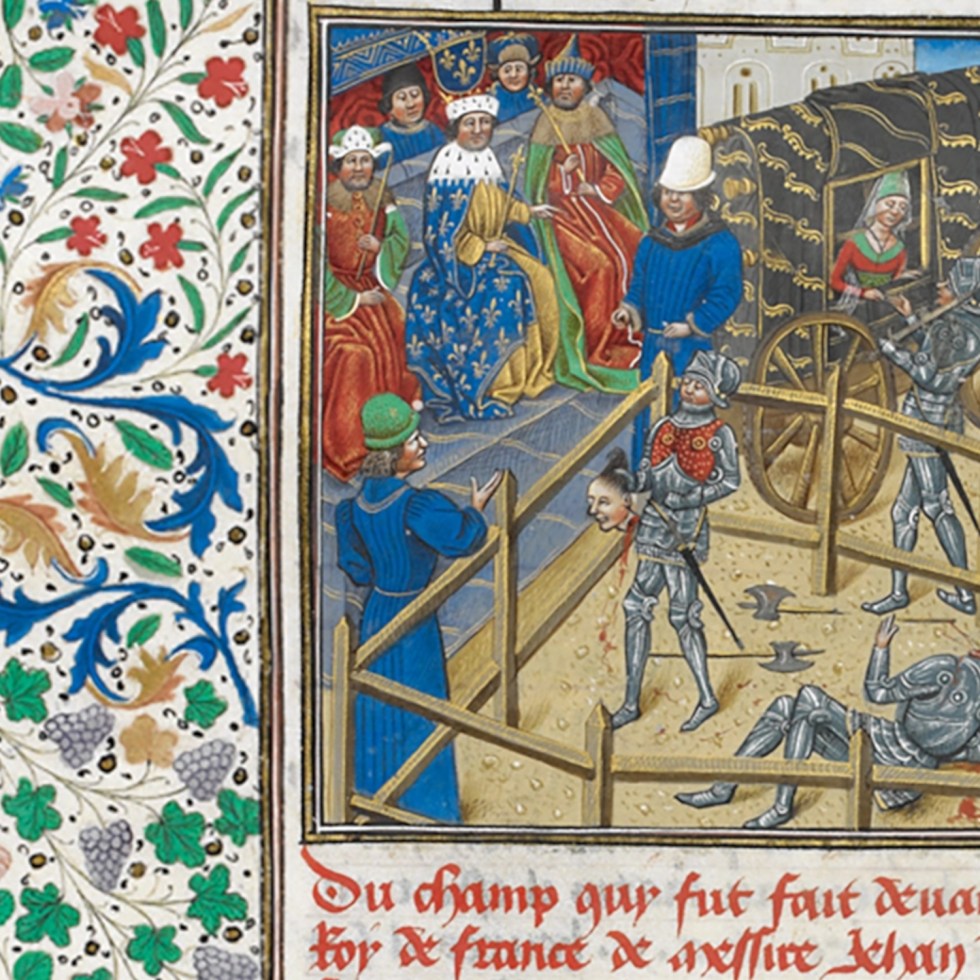 Du champ quy fut fait deua
Roy de france de messire Jehan